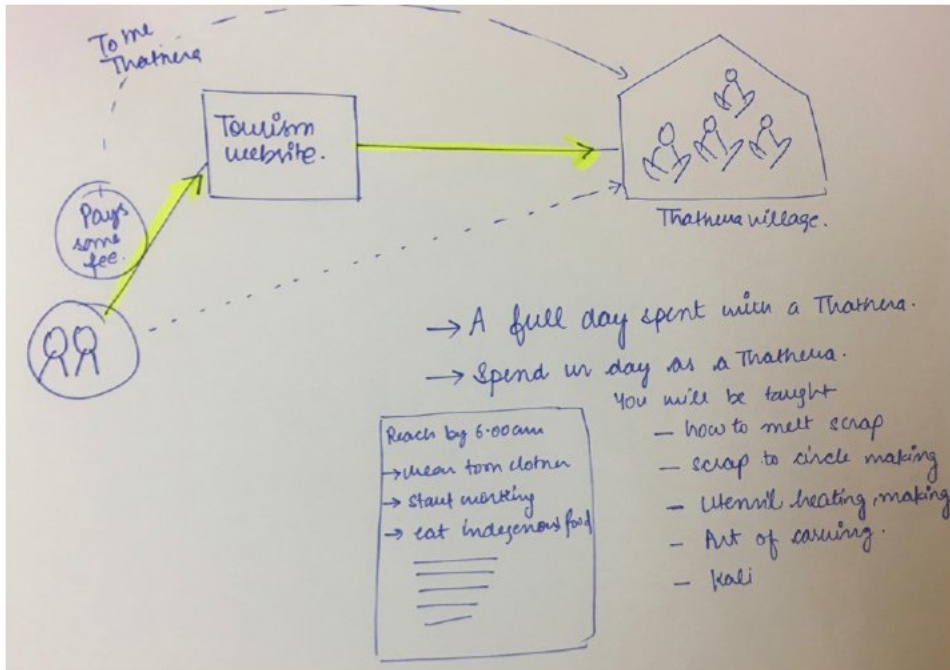 To the
Thathera
Tourism
website.
Pays
some
fee.
Thathera village.
→ A full day spent with a Thathera.
→ Spend ur day as a Thathera.
You will be taught
– how to melt scrap
– scrap to circle making
– Utensil heating, making
– Art of carving.
– Kali
Reach by 6.00am
→ wear torn clothes
→ start working
→ eat indegenous food